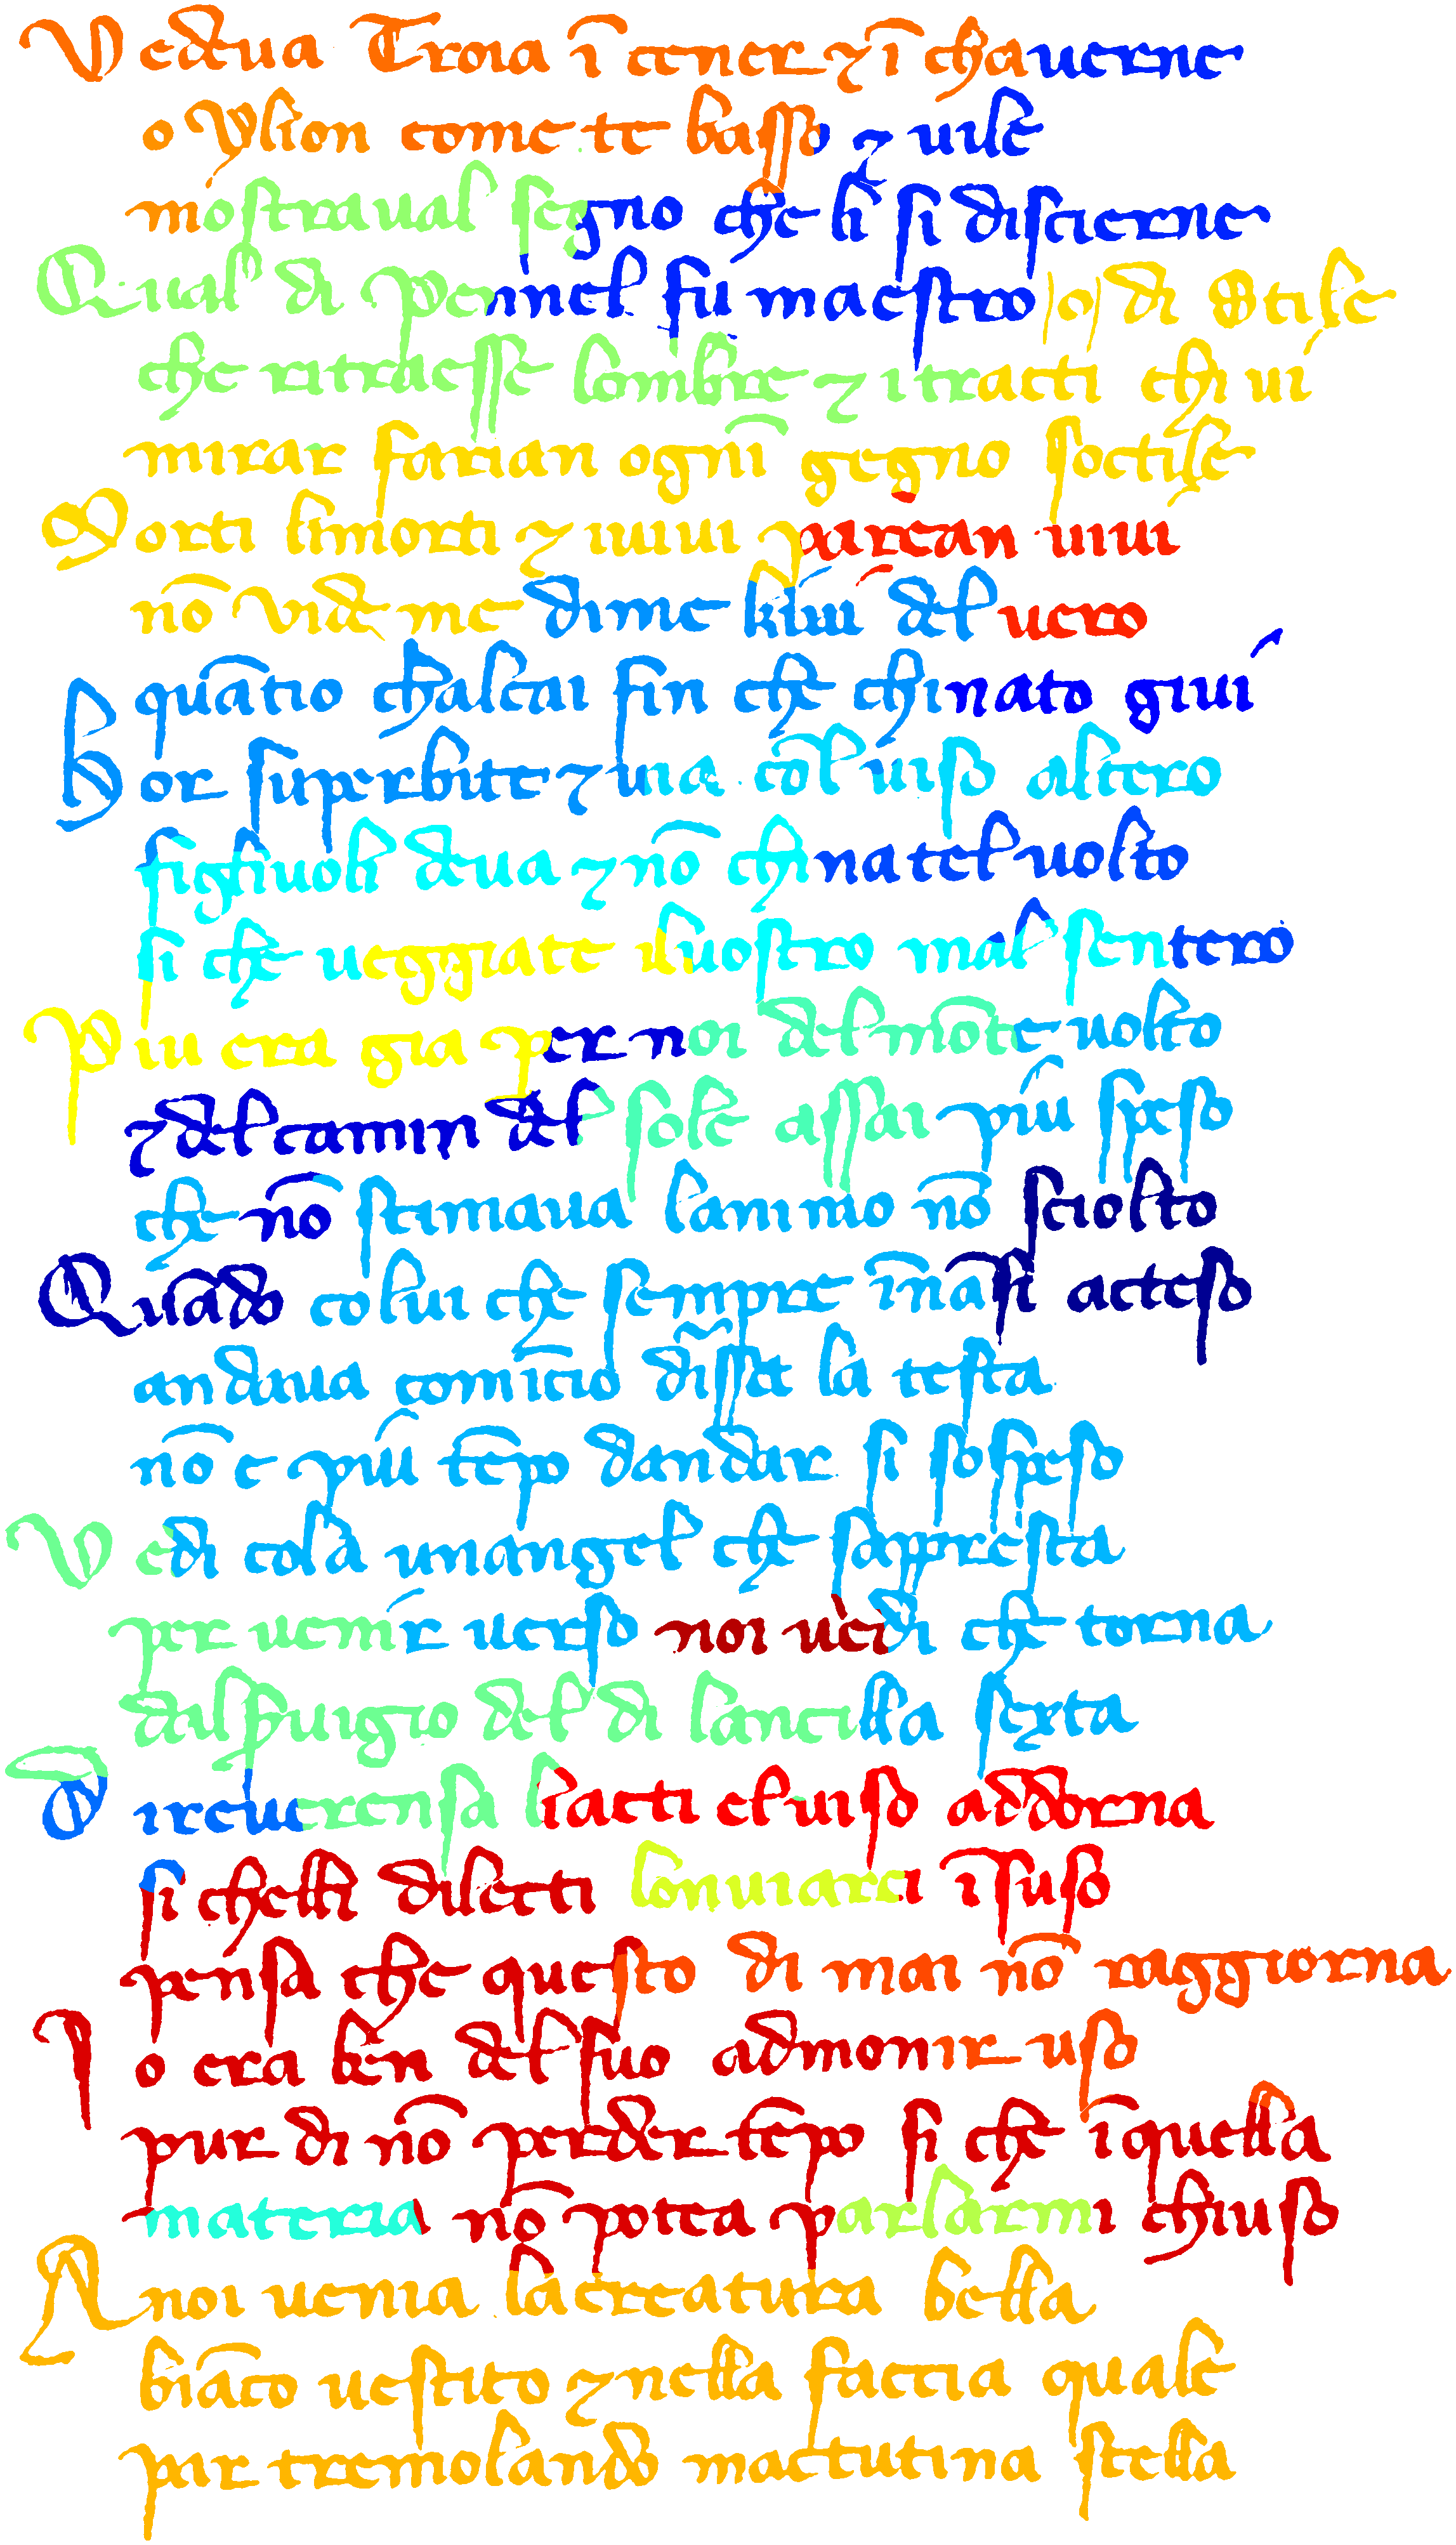 Vedeua Troia ī cener ⁊ ī chauerne
o Ylion come te basso ⁊ uile
mostraual segno che li si discierne
Qual di pennel fu maestro o di stile
che ritraesse lombre ⁊ i tracti chiui
mirar farian ogni gegno soctile
Morti limorti ⁊ iuiui parean uiui
nō vide me di me chi uide l uero
quātio chalcai fin che chinato giui
Hor superbite ⁊ uia cōl uiso altero
figliuoli deua ⁊ nō chinatel uolto
si che ueggiate iluostro mal sentero
Piu era gia per noi del mōte uolto
⁊ del camin del sole assai piu speso
che nō stimaua lanimo nō sciolto
Quādo colui che sempre īnāsi acteso
andaua comīcio dissa la testa
nō e piu tēpo dandar si sospeso
Vedi cola unangel che sappresta
per uenir uerso noi uedi che torna
dal seruigio del di lancilla sexta
Direuerensa liacti eluiso addorna
si chelli dilecti lonuiarci īsuso
pensa che questo di mai nō raggiorna
Io era ben del suo admonir uso
pur di nō perder tēpo si che īquella
materia nō potea parlarmi chiuso
A noi uenia lacreatura bella
biāco uestito ⁊ nella faccia quale
par tremolando mactutina stella